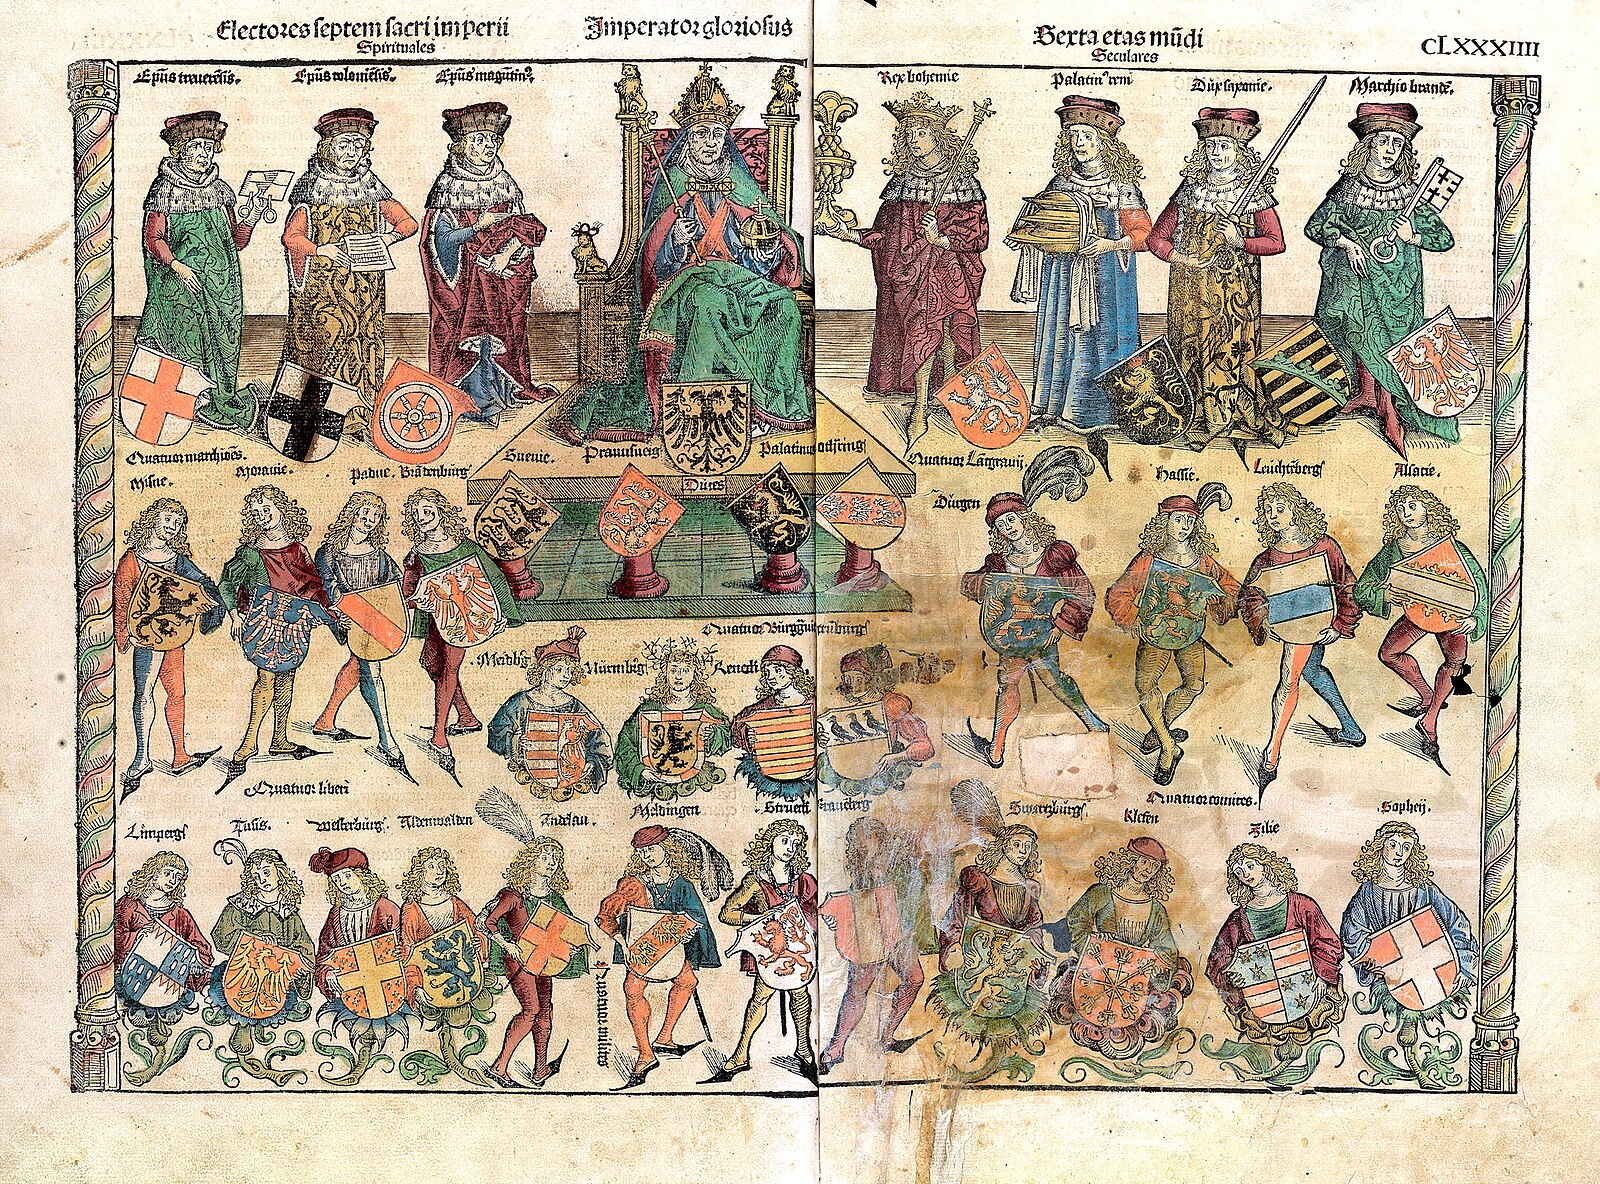 Electores septem sacri imperii
Spirituales
Imperator gloriosus
Sexta etas mũdi
Seculares
CLXXXIIII
Epũs treuerẽsis.
Epũs coloniẽsis.
Epũs magũtinꝰ
Rex bohemie
Palatinꝰ reni
Dux saxonie.
Marchio brandẽ.
Quatuor marchiões.
Misne.
Morauie.
Padue.
Brãdenburg
Sueuie.
Praunsueig
Palatinus
lothring
Duces
Quatuor Lãtgrauij.
Dũrgen
Hassie.
Leuchtẽberg
Alsatie.
Quatuor Burggrauij
Meidbg
Nũrmbg
Reneck
Quatuor liberi
Limperg
Tusis.
Westerburg.
Aldenwalden
Andelau.
Meldingen
Strueck
Fraueberg
Quatuor milites
Quatuor comites.
Swartzburg
Klefen
Zilie
Sophey.